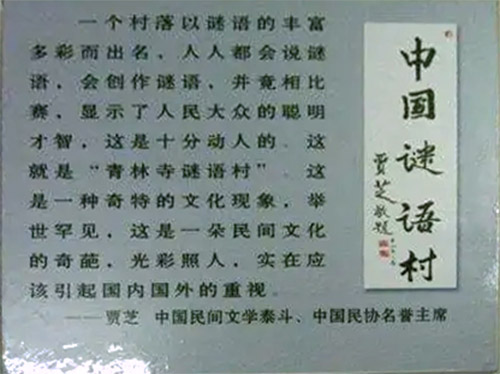 一个村落以谜语的丰富
多彩而出名，人人都会说谜
语，会创作谜语，并竟相比
赛，显示了人民大众的聪明
才智，这是十分动人的。这
就是“青林寺谜语村”。这
是一种奇特的文化现象，举
世罕见，这是一朵民间文化
的奇葩，光彩照人，实在应
该引起国内国外的重视。
——贾芝 中国民间文学泰斗、中国民协名誉主席
中国谜语村
贾芝敬题